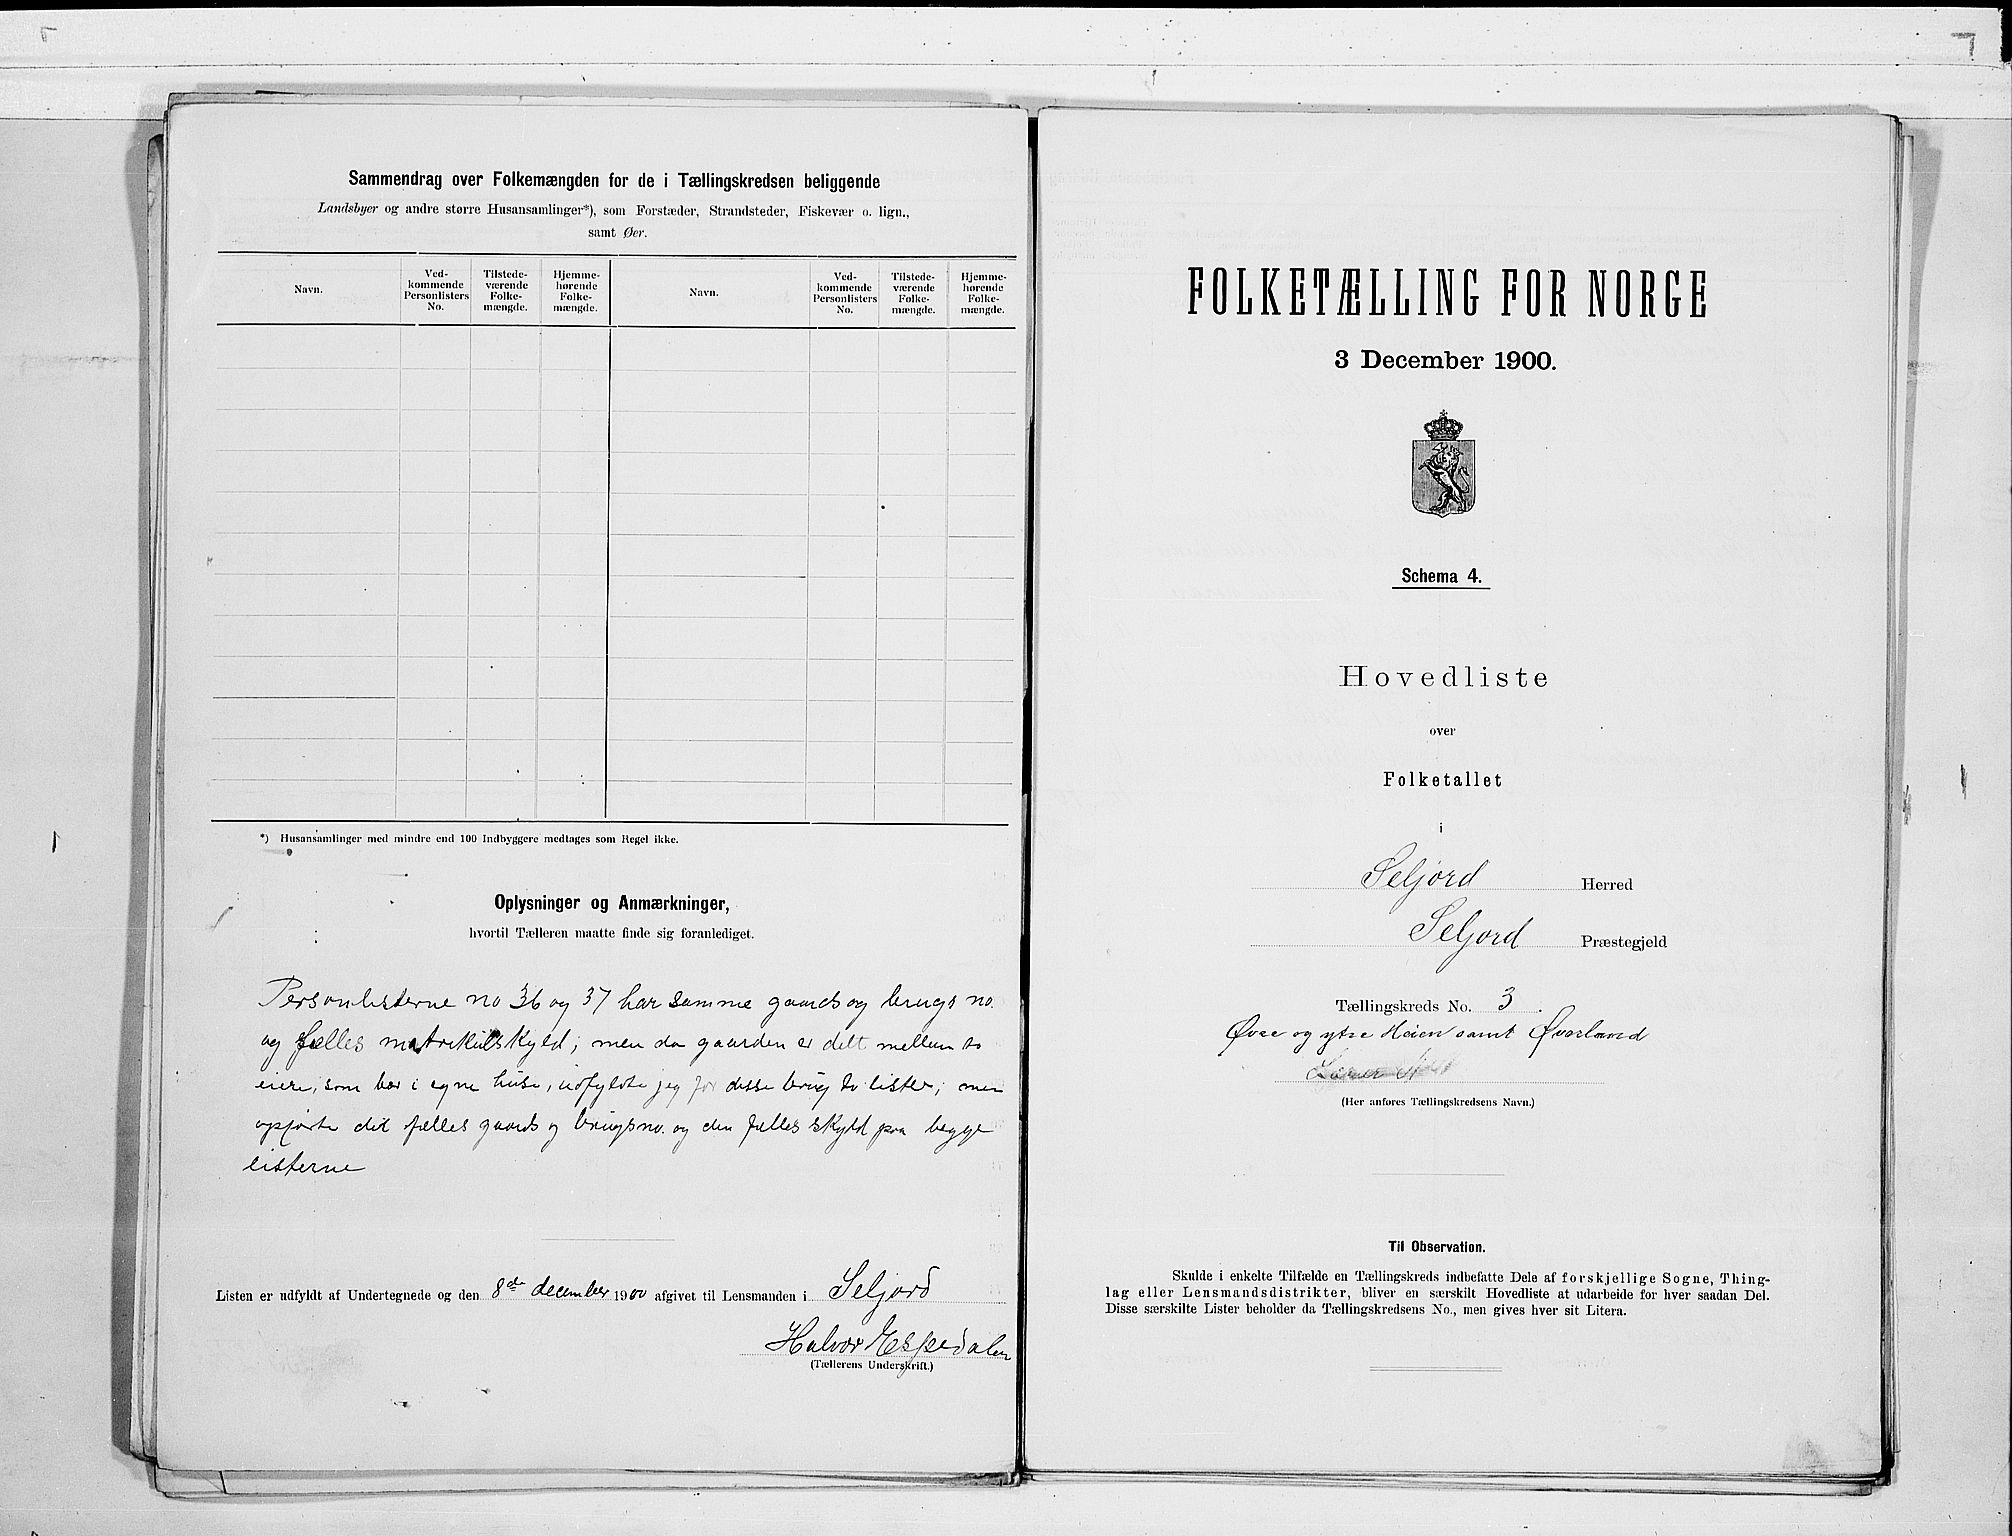 Sammendrag over Folkemængden for de i Tællingskredsen beliggende
Landsbyer og andre større Husansamlinger*), som Forstæder, Strandsteder, Fiskevær o. lign.,
samt Øer.
Navn. Ved-kommende Personlisters No. Tilstede-værende Folke-mængde. Hjemme-hørende Folke-mængde. Navn. Ved-kommende Personlisters No. Tilstede-værende Folke-mængde. Hjemme-hørende Folke-mængde.
*) Husansamlinger med mindre end 100 Indbyggere medtages som Regel ikke.
Oplysninger og Anmærkninger,
hvortil Tælleren maatte finde sig foranlediget.
Personlisterne no 36 og 37 har samme gaards og brugs no.
og fælles matrikulskyld; men da gaarden er delt mellem to
eiere, som bor i egne huse, udfyldte jeg for disse brug to lister; men
opførte det fælles gaards og brugsno. og den fælles skyld paa begge
listerne
Listen er udfyldt af Undertegnede og den 8de december 1900 afgivet til Lensmanden i Seljord
Halvor Espedalen
(Tællerens Underskrift.)
FOLKETÆLLING FOR NORGE
3 December 1900.
Schema 4.
Hovedliste
over
Folketallet
i
Seljord Herred
Seljord Præstegjeld
Tællingskreds No. 3.
Øvre og ytre Heien samt Øverland
(Her anføres Tællingskredsens Navn.)
Til Observation.
Skulde i enkelte Tilfælde en Tællingskreds indbefatte Dele af forskjellige Sogne, Thing-
lag eller Lensmandsdistrikter, bliver en særskilt Hovedliste at udarbeide for hver saadan Del.
Disse særskilte Lister beholder da Tællingskredsens No., men gives hver sit Litera.